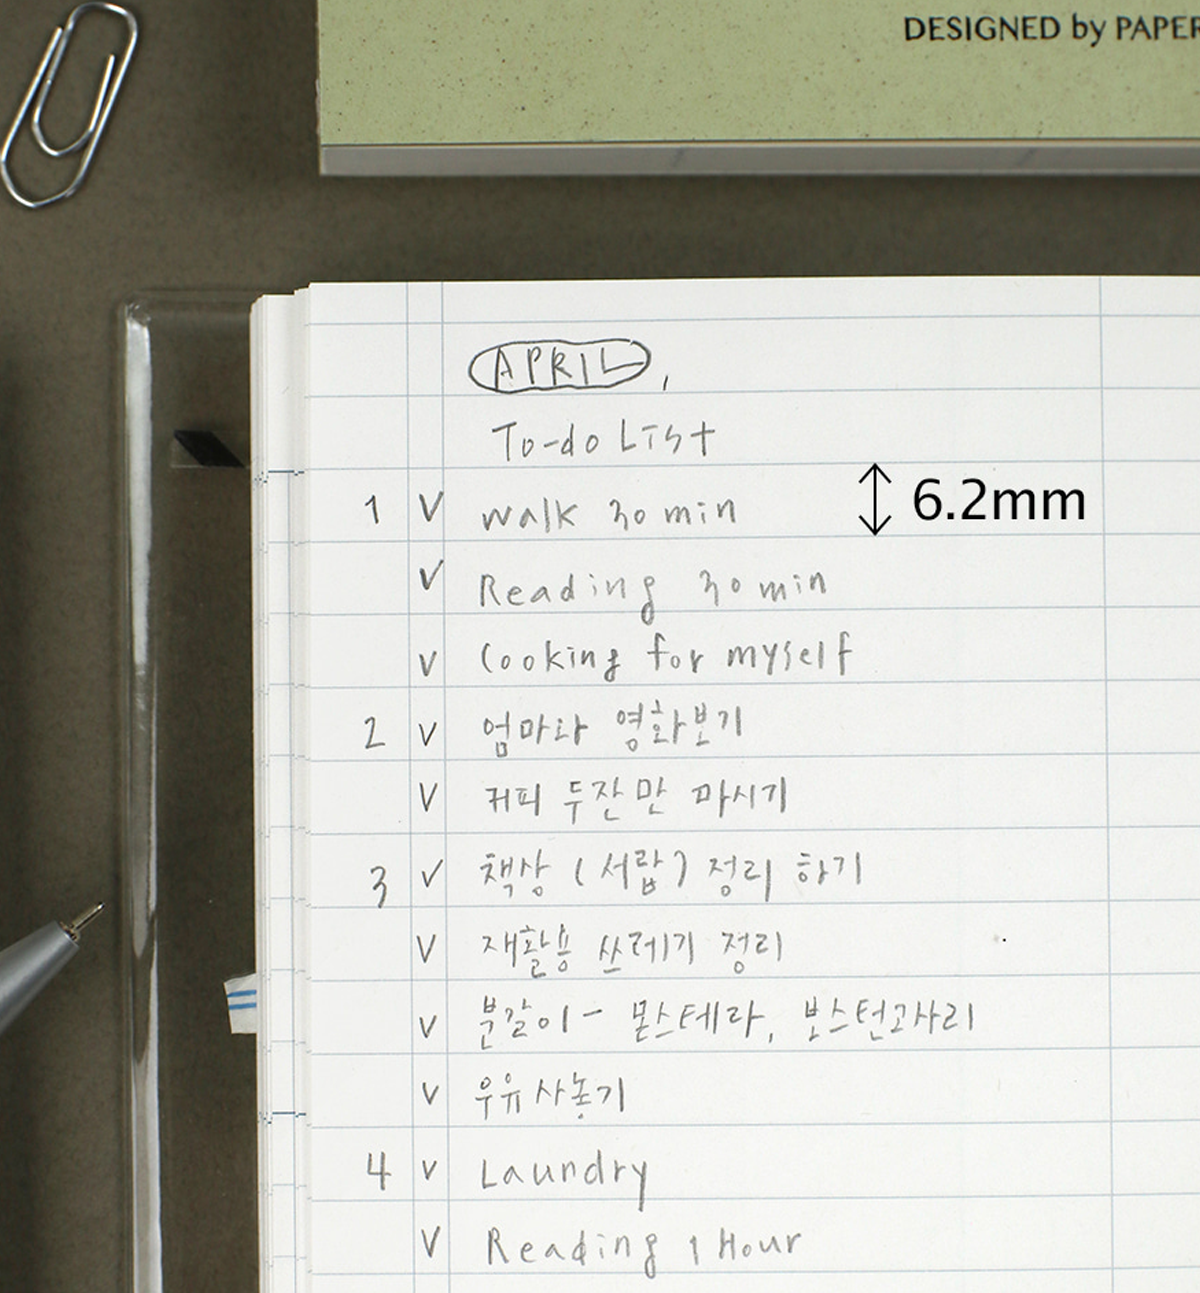 DESIGNED by PAPER
APRIL,
To-do List
6.2mm
1 V walk 30 min
V Reading 30 min
V Cooking for myself
2 V 엄마와 영화보기
V 커피 두잔만 마시기
3 V 책상 (서랍) 정리 하기
V 재활용 쓰레기 정리
V 분갈이 - 몬스테라, 보스턴고사리
V 우유 사놓기
4 V Laundry
V Reading 1 Hour